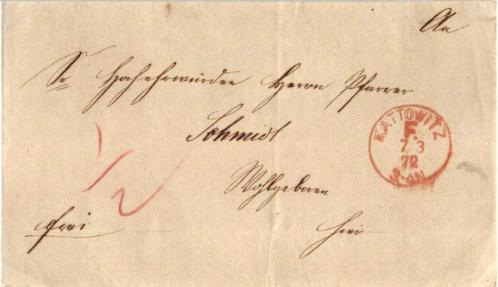 An
Sr Hochehrwürden Herrn Pfarrer
Schmidt
Wohlgeboren
frei
hier
1/2
KATTOWITZ
F.
7/3
72
3-4N